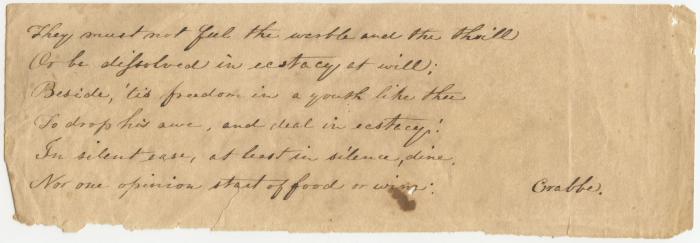 They must not feel the warble and the thrill
Or be dissolved in ecstacy at will;
Beside, 'tis freedom in a youth like thee
To drop his awe, and deal in ecstacy!
In silent ease, at least in silence, dine,
Nor one opinion start of food or wine: Crabbe.